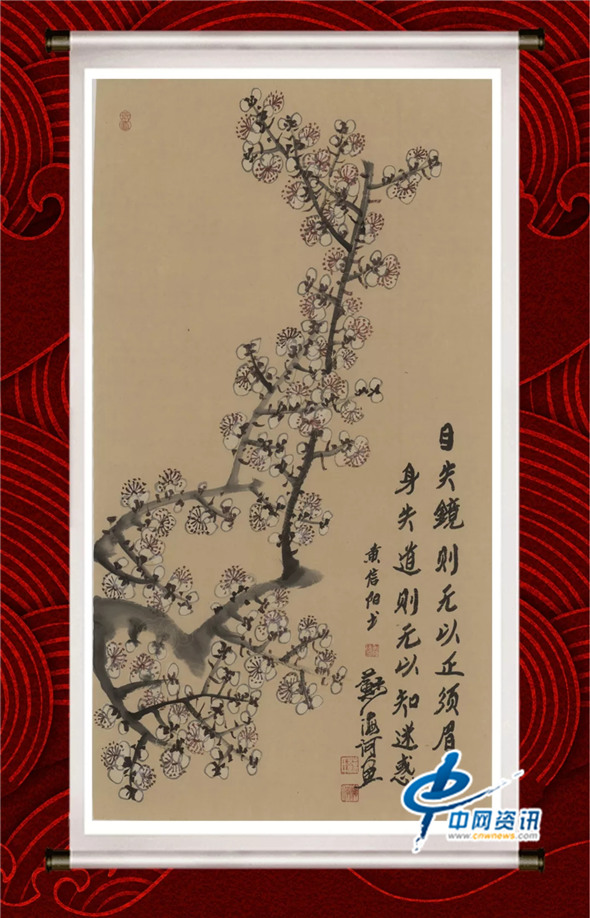 目失鏡则无以正须眉
身失道则无以知迷惑
黄信阳书
中网资讯
www.cnwnews.com